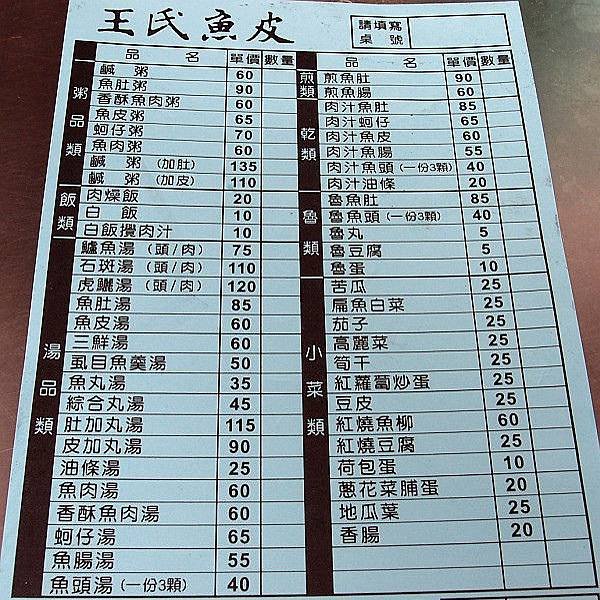 王氏魚皮
請填寫
桌號
品名 單價 數量
粥品類
鹹粥 60
魚肚粥 90
香酥魚肉粥 60
魚皮粥 65
蚵仔粥 70
魚肉粥 60
鹹粥 (加肚) 135
鹹粥 (加皮) 110
飯類
肉燥飯 20
白飯 10
白飯攪肉汁 10
湯品類
鱸魚湯 (頭/肉) 75
石斑湯 (頭/肉) 110
虎鱺湯 (頭/肉) 120
魚肚湯 85
魚皮湯 60
三鮮湯 60
虱目魚羹湯 50
魚丸湯 35
綜合丸湯 45
肚加丸湯 115
皮加丸湯 90
油條湯 25
魚肉湯 60
香酥魚肉湯 60
蚵仔湯 65
魚腸湯 55
魚頭湯 (一份3顆) 40
品名 單價 數量
煎類
煎魚肚 90
煎魚腸 60
乾類
肉汁魚肚 85
肉汁蚵仔 65
肉汁魚皮 60
肉汁魚腸 55
肉汁魚頭 (一份3顆) 40
肉汁油條 20
魯類
魯魚肚 85
魯魚頭 (一份3顆) 40
魯丸 5
魯豆腐 5
魯蛋 10
小菜類
苦瓜 25
扁魚白菜 25
茄子 25
高麗菜 25
筍干 25
紅蘿蔔炒蛋 25
豆皮 25
紅燒魚柳 60
紅燒豆腐 25
荷包蛋 10
蔥花菜脯蛋 20
地瓜葉 25
香腸 20